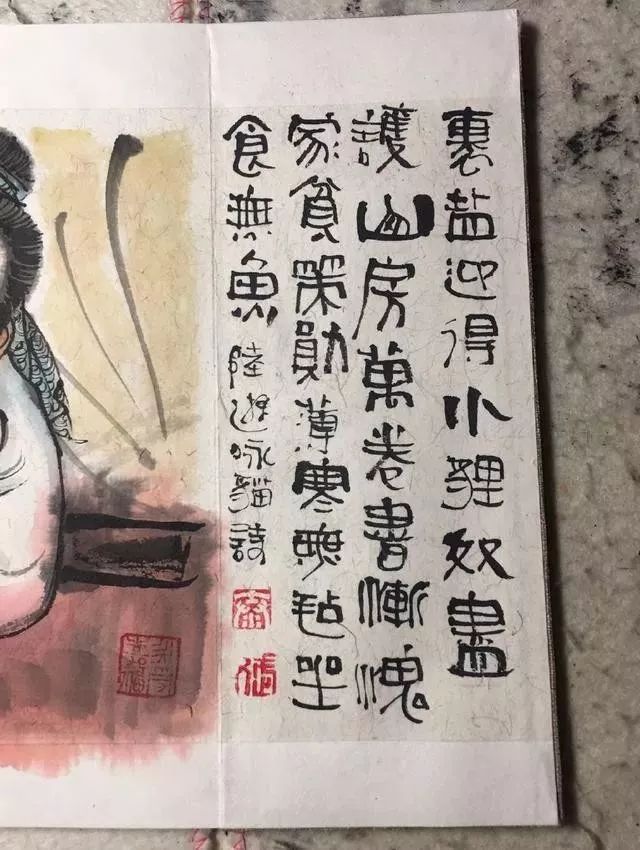 裹盐迎得小貍奴盡
護山房萬卷書慚愧
家貧策勛薄寒無毡坐
食無魚陸游咏貓詩